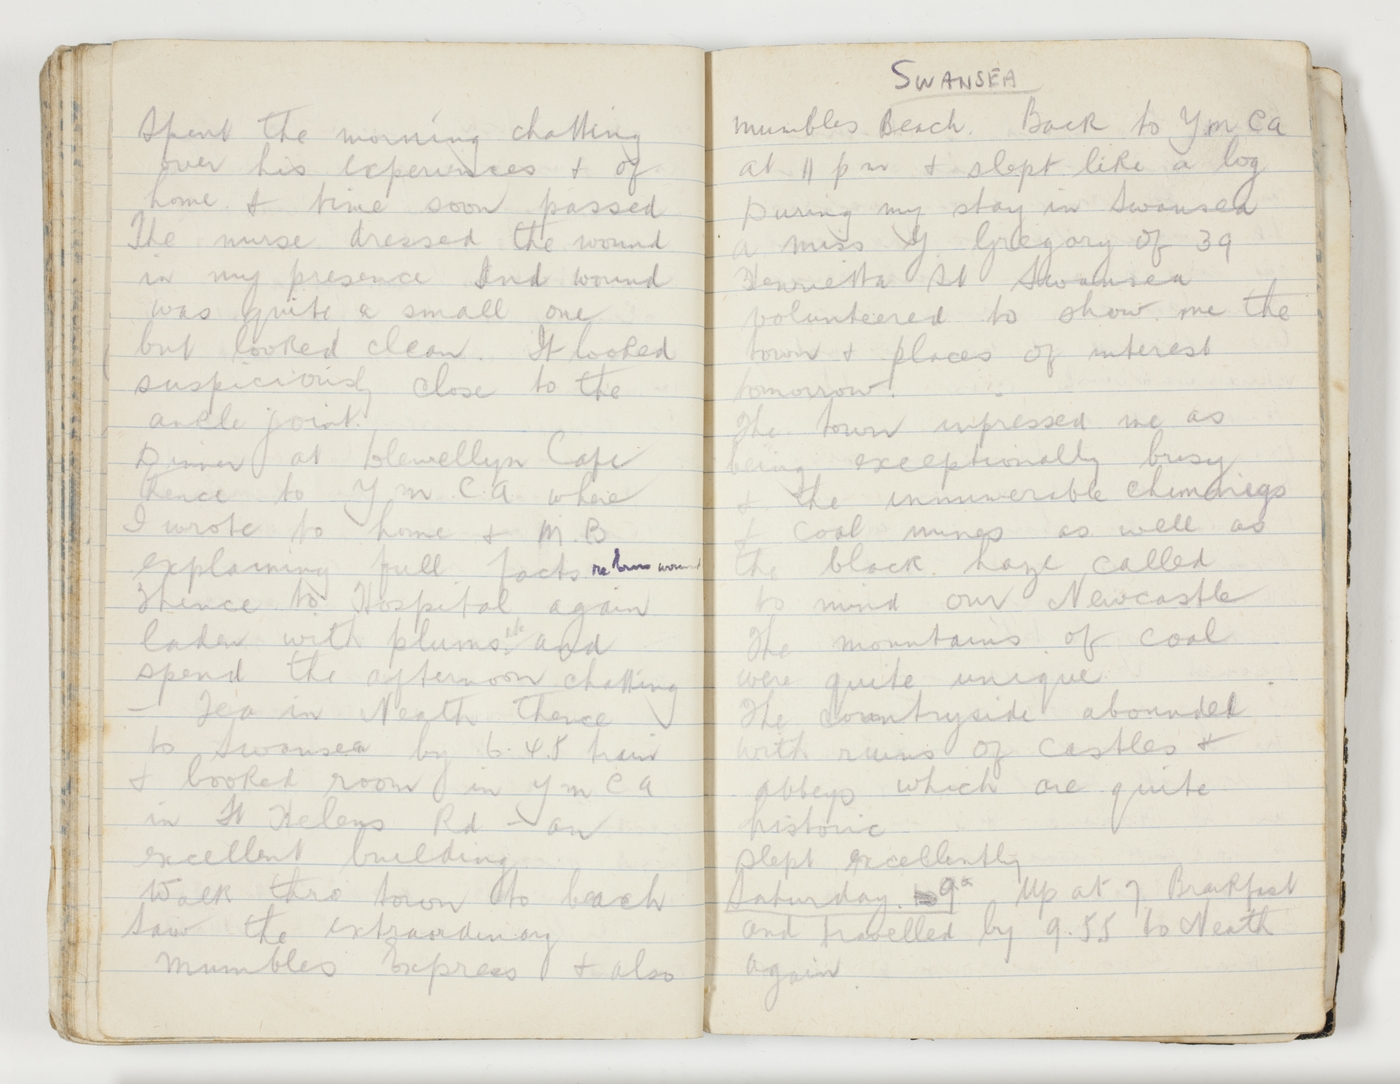 Spent the morning chatting
over his experiences & of
home & time soon passed
The nurse dressed the wound
in my presence And wound
was quite a small one
but looked clean. It looked
suspiciously close to the
ancle joint.
Dinner at Llewellyn Cafe
thence to Y m C.A where
I wrote to home & M.B
explaining full facts re Toms wound
Thence to Hospital again
laden with plums etc and
spend the afternoon chatting
— Tea in Neath thence
to Swansea by 6.45 train
& booked room in Y m C A
in St Helens Rd - an
excellent building
Walk thro town to beach
Saw the extraordinary
Mumbles Express & also
SWANSEA
Mumbles Beach. Back to Y m C a
at 11 p m & slept like a log
During my stay in Swansea
a miss G. Gregory of 39
Henrietta St Swansea
volunteered to show me the
town & places of interest
tomorrow.
The town impressed me as
being exceptionally busy
& the innumerable chimnies
& coal mines as well as
the black haze called
to mind our Newcastle
The mountains of coal
were quite unique
The countryside abounded
with ruins of castles &
abbeys which are quite
historic
Slept excellently
Saturday. 9th Up at 7 Breakfast
and travelled by 9.55 to Neath
again